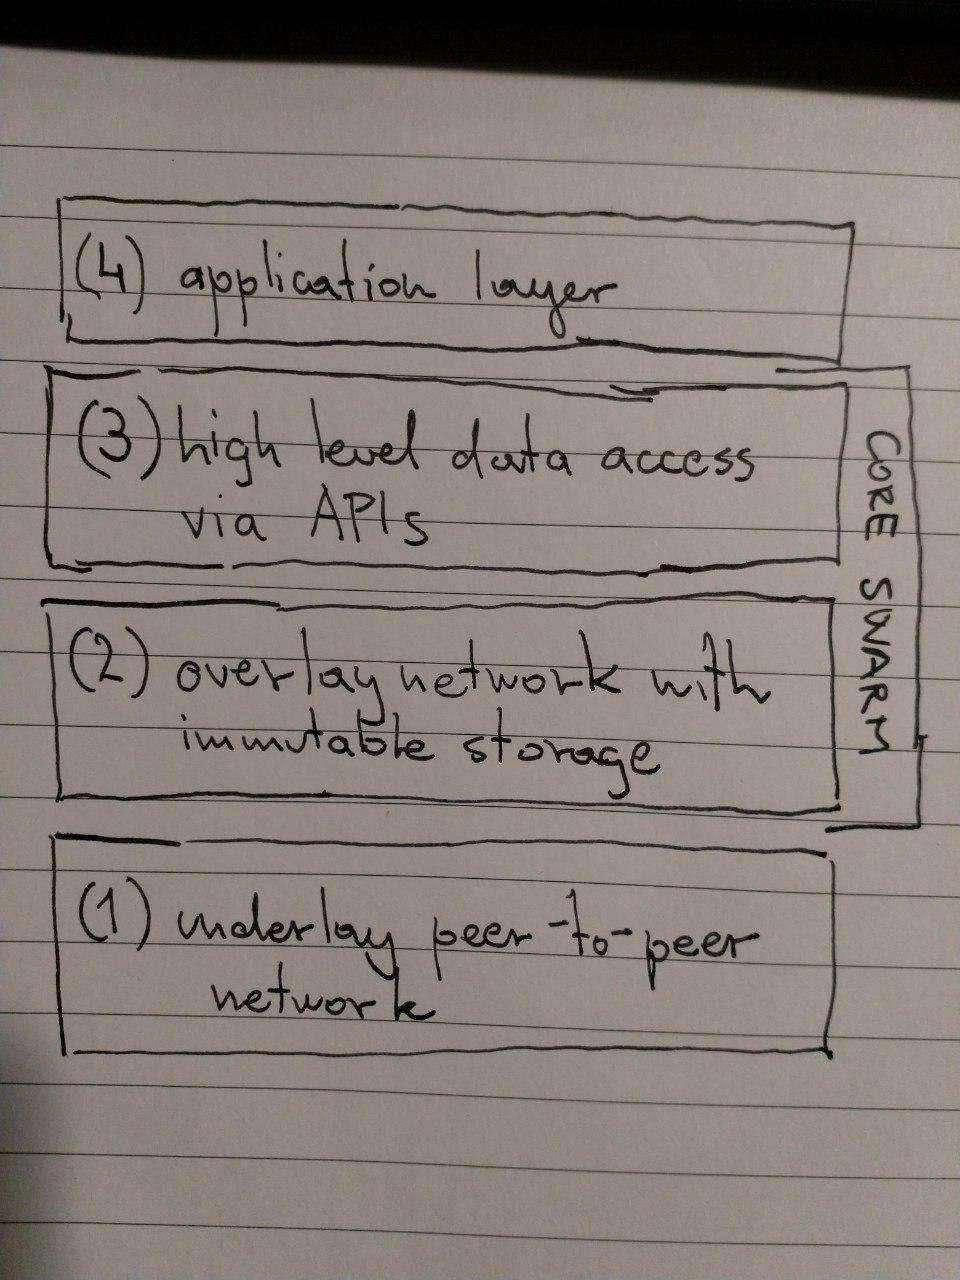 (4) application layer
(3) high level data access
via APIs
(2) overlay network with
immutable storage
(1) underlay peer-to-peer
network
CORE SWARM